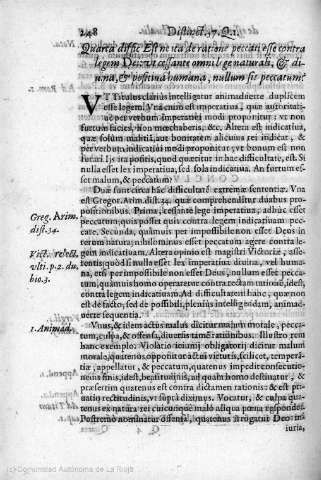 248 Distinct. 17. Q. 1.
Quarta diffic. Est ne ita de ratione peccati, esse contra
legem Dei: vt cessante omni lege naturali, & di
uina, & positiua humana, nullum sit peccatum?
VT Titulus clarius intelligatur animaduerte duplicem
esse legem. Vna cum est imperatiua, quæ autoritati
ue per verbum imperatiui modi proponitur: vt non
furtum facies, Non mœchaberis, &c. Altera est indicatiua,
quæ solum malitia, aut bonitatem alicuius rei indicat, &
per verbum indicatiui modo proponitur; vt bonum est non
furari. Iis ita positis, quod quæritur in hac difficultate, est. Si
nulla esset lex imperatiua, sed sola indicatiua. An furtum es-
set malum, & peccatum?
Duæ sunt circa hãc difficultatẽ extremæ sententiæ. Vna
Greg. Arim.
dist. 34.
est Gregor. Arim. dist. 34. quæ comprehenditur duabus pro
positionibus. Prima, cessante lege imperatiua, adhuc esset
peccatum, quis posset quis contra legem indicatiuam pec-
care. Secunda, quãmuis per impossibile non esset Deus in
rerum natura, nihilominus esset peccatum agere contra le-
Vict. relect.
vlti. p. 2. du
bio. 3.
gem indicatiuam. Altera opinio est magistri Victoriæ, esset
Si non esset lex imperatiua diuina, vel huma
na, esto per impossibile non esset Deus, nullum esset pec-
catum, quãmuis homo operaretur contra rectam rationẽ, idest,
contra legem indicatiuam. Ad difficultatẽ hanc, quamuis non
est de facto, sed de possibili, plenius intelligendam, animad-
uerte sequentia.
1. Animad.
Vnus, & idem actus malus dicitur malum morale, pecca-
tum, culpa, & offensa, diuersis tamẽ rationibus. Illustro rem
hanc exemplo: Violatio ieiunij obligatorij dicitur malum
morale, quatenus opponitur actui virtutis, scilicet, temperã-
tiæ, appellatur, & peccatum, quatenus impedit consecutio-
nem finis, idest, beatitudinis, ad quam homo destinatur, &
præsertim quatenus est contra dictamen rationis: & est pri
uatio rectitudinis, vt supra diximus. Vocatur, & culpa qua-
tenus ex natura rei cuicunque malo aliqua pœna respondet.
Postremò nominatur offensa, quatenus irrogatur Deo in-
iuria,
(c) Comunidad Autónoma de La Rioja